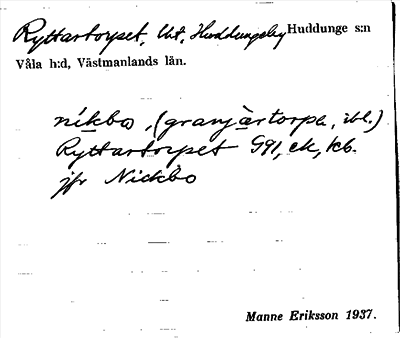 Ryttartorpet, Ut. Huddungeby Huddunge s:n
Våla h:d, Västmanlands län.
níkbo, (granjàrtorpa, ibl.)
Ryttartorpet G91, ek, kb.
jfr Nickbo
Manne Eriksson 1937.